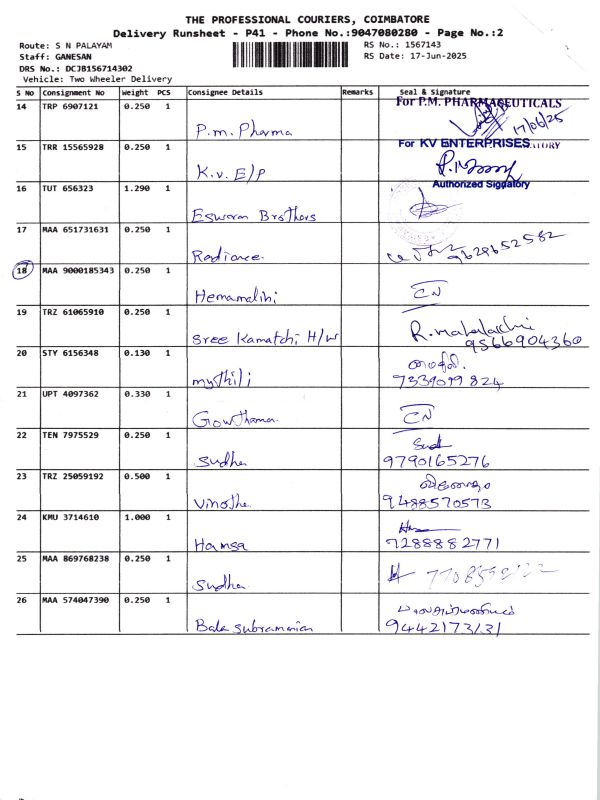 THE PROFESSIONAL COURIERS, COIMBATORE
Delivery Runsheet - P41 - Phone No.:9047080280 - Page No.:2
Route: S N PALAYAM
RS No.: 1567143
Staff: GANESAN
RS Date: 17-Jun-2025
DRS No.: DCJB156714302
Vehicle: Two Wheeler Delivery
S No Consignment No Weight PCS Consignee Details Remarks Seal & Signature
14 TRP 6907121 0.250 1 For P.M. PHARMACEUTICALS
P.m. Pharma 17/06/25
15 TRR 15565928 0.250 1 For KV ENTERPRISES
K.v. E/P
16 TUT 656323 1.290 1 Authorized Signatory
Eswaran Brothers
17 MAA 651731631 0.250 1
Radiance 9629652582
18 MAA 9000185343 0.250 1
Hemamalini CN
19 TRZ 61065910 0.250 1
Sree Kamatchi H/W R. Mahalakshmi
9566904360
20 STY 6156348 0.130 1
mythili 7339099824
21 UPT 4097362 0.330 1
Gowthama CN
22 TEN 7975529 0.250 1
Sudha 9790165276
23 TRZ 25059192 0.500 1
Vinotha 9488570573
24 KMU 3714610 1.000 1
Hamsa 7288882771
25 MAA 869768238 0.250 1
Sudha
26 MAA 574047390 0.250 1
Bala Subramanian 9442173131